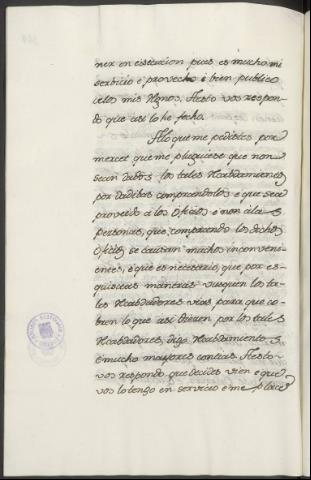 ner en essecucion pues es mucho mi
serbicio e provecho e bien publico
de los mis Rgnos. A esto vos respon-
do que asi lo he fecho.
A lo que me pedistes por
merced que me pluguiese que non
sean dados los tales Recabdamientos
por dadibas comprandolos e que sea
proveido a los oficios e non a las
personas, que comprando los dichos
oficios se causan muchos inconveni-
entes, e que es necesario, que por es-
quisitas maneras busquen los ta-
les Recabdadores vias para que co-
bren lo que asi dieren por los tales
Recabdadores, digo Recabdamientos
e mucho mayores contias. A esto
vos respondo que decides vien e que
vos lo tengo en servicio e me place